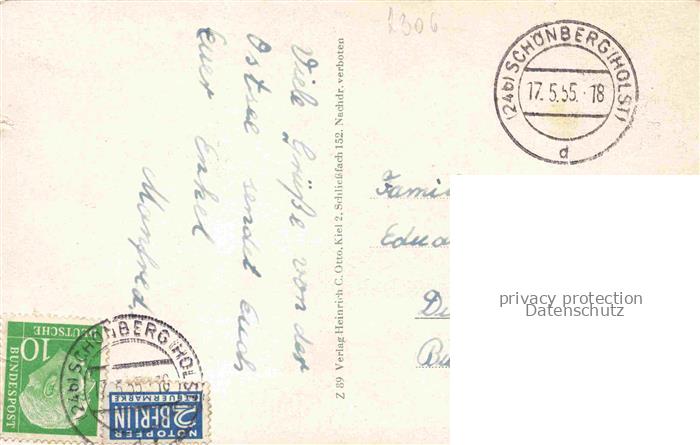 2306
Viele Grüße von der
Ostsee sendet Euch
Euer Enkel
Manfred
Z 89 Verlag Heinrich C. Otto, Kiel 2, Schließfach 152. Nachdr. verboten
(24b) SCHÖNBERG (HOLST)
17.5.55.-18
d
Fami
Edua
Bu
privacy protection
Datenschutz
10
DEUTSCHE
BUNDESPOST
(24b) SCHÖNBERG (HOLST)
17.5.55.-18
NOTOPFER
2 BERLIN
STEUERMARKE